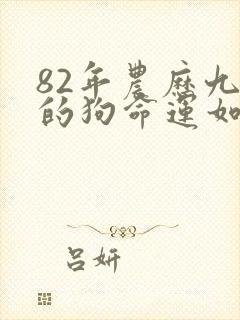 82年農历九
的狗命運如
吕妍